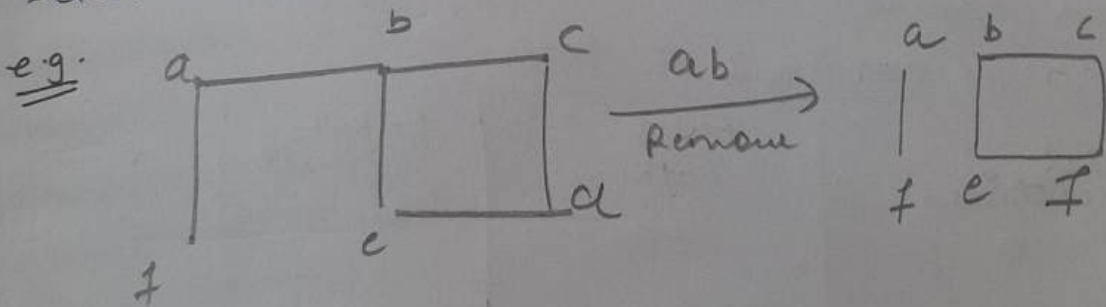 e.g.
a b c
f e d
ab
Remove
a b c
f e f